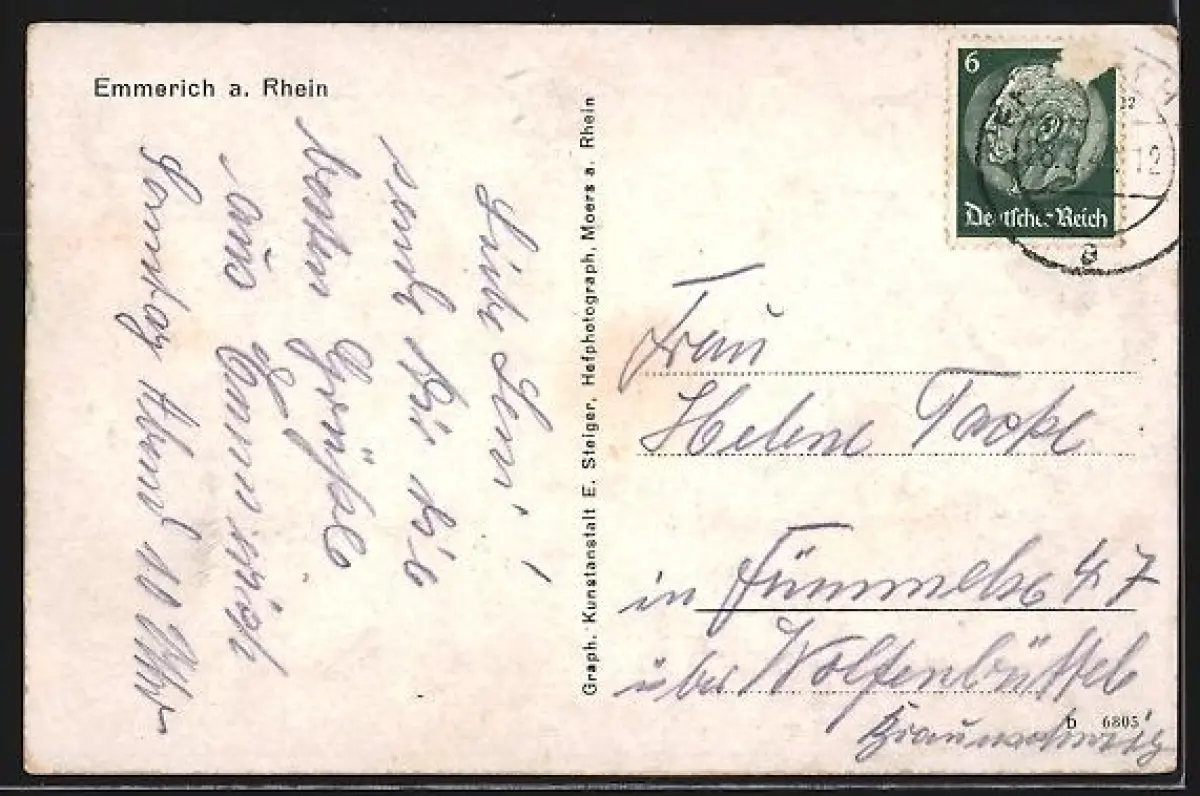 Emmerich a. Rhein
Liebe Leni!
sende Dir die
besten Grüße
aus Emmerich
Sonntag Abend 10 Uhr
Graph. Kunstanstalt E. Steiger, Hofphotograph, Moers a. Rhein
6
Deutsches Reich
12
e
Frau
Helene Tacke
in Fümmelse 47
über Wolfenbüttel
Braunschweig
b 6805